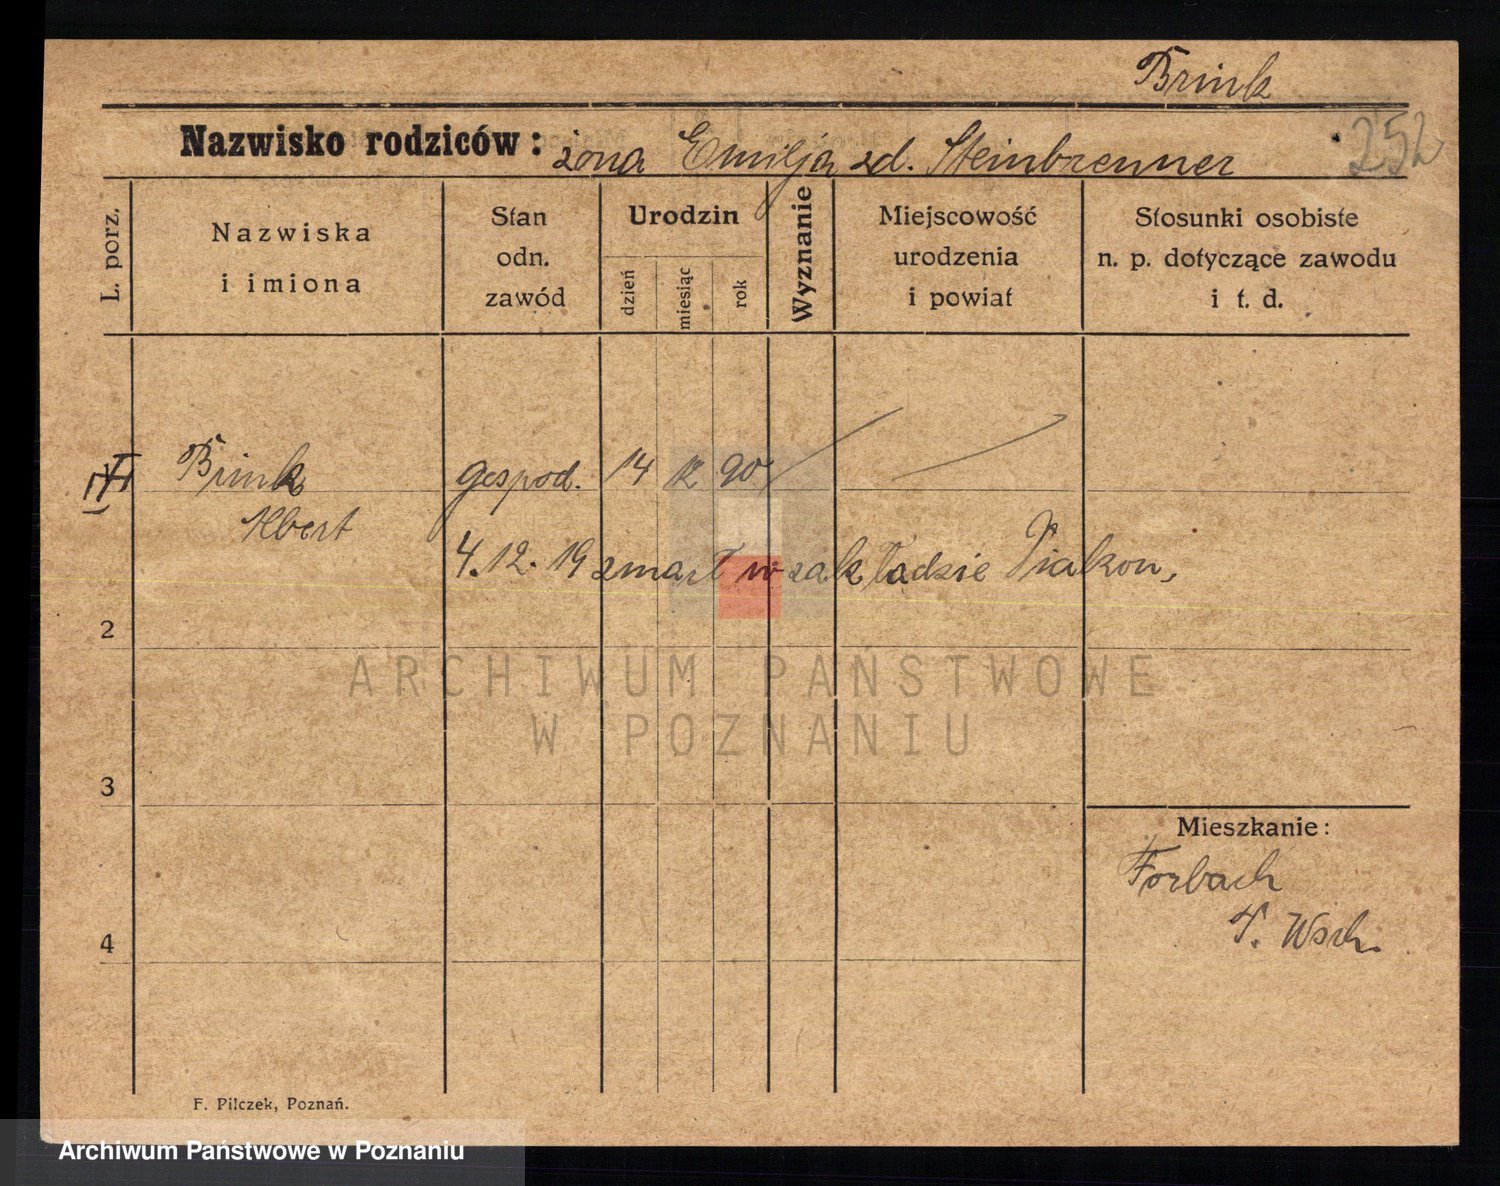 Brink
252
Nazwisko rodziców: żona Emilja zd. Steinbrenner
L. porz.
Nazwiska
i imiona
Stan
odn.
zawód
Urodzin
dzień
miesiąc
rok
Wyznanie
Miejscowość
urodzenia
i powiat
Stosunki osobiste
n. p. dotyczące zawodu
i t. d.
Brink gospod. 14 12 90
Albert
4.12.19 zmarł w zakładzie Diakon,
2
3
4
Mieszkanie:
Forbach
P. Wsch.
F. Pilczek, Poznań.
ARCHIWUM PAŃSTWOWE
W POZNANIU
Archiwum Państwowe w Poznaniu